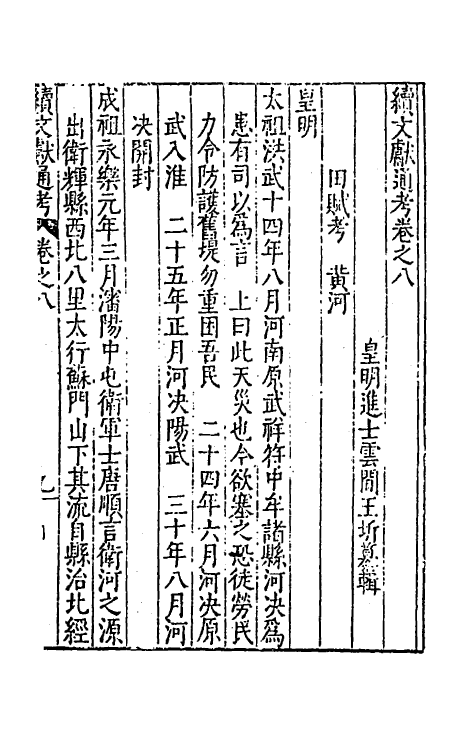 續文獻通考卷之八
皇明進士雲間王圻纂輯
田賦考　黃河
皇明
太祖洪武十四年八月河南原武祥符中牟諸縣河决爲
患有司以爲言　上曰此天災也今欲塞之恐徒勞民
力令防護舊堤勿重困吾民　二十四年六月河决原
武入淮　二十五年正月河决陽武　三十年八月河
决開封
成祖永樂元年三月瀋陽中屯衛軍士唐順言衛河之源
出衛輝縣西北八里太行蘇門山下其流自縣治北經
續文獻通考　卷之八